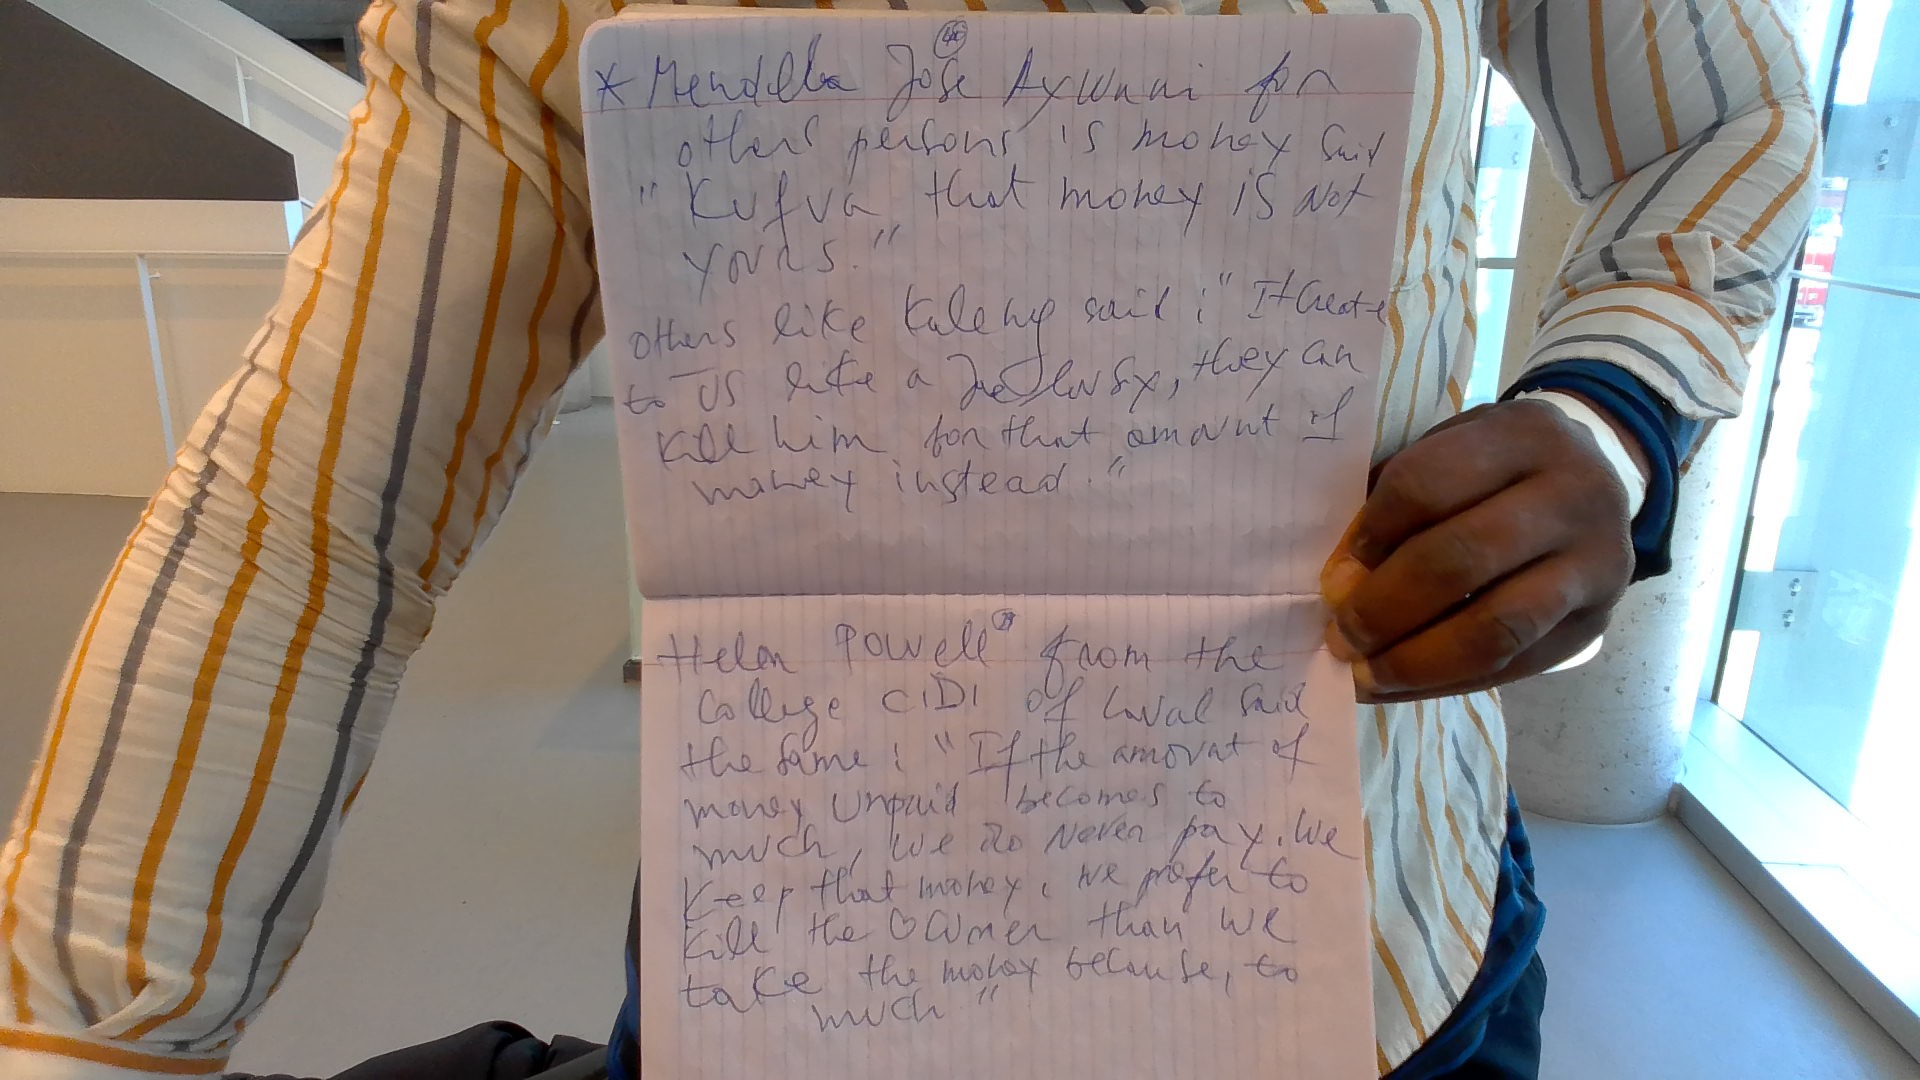 46
* Mendella José Aywnni for
others persons is money said
" Kufua, that money is not
yours."
others like Kaleng said : "It Create
to us like a Jealousy, they can
kill him for that amount of
money instead."
Helen Powell from the
College CDI of Laval said
the same : "If the amount of
money unpaid becomes to
much, we do never pay. We
keep that money, we prefer to
kill the owner than we
take the money because, to
much"